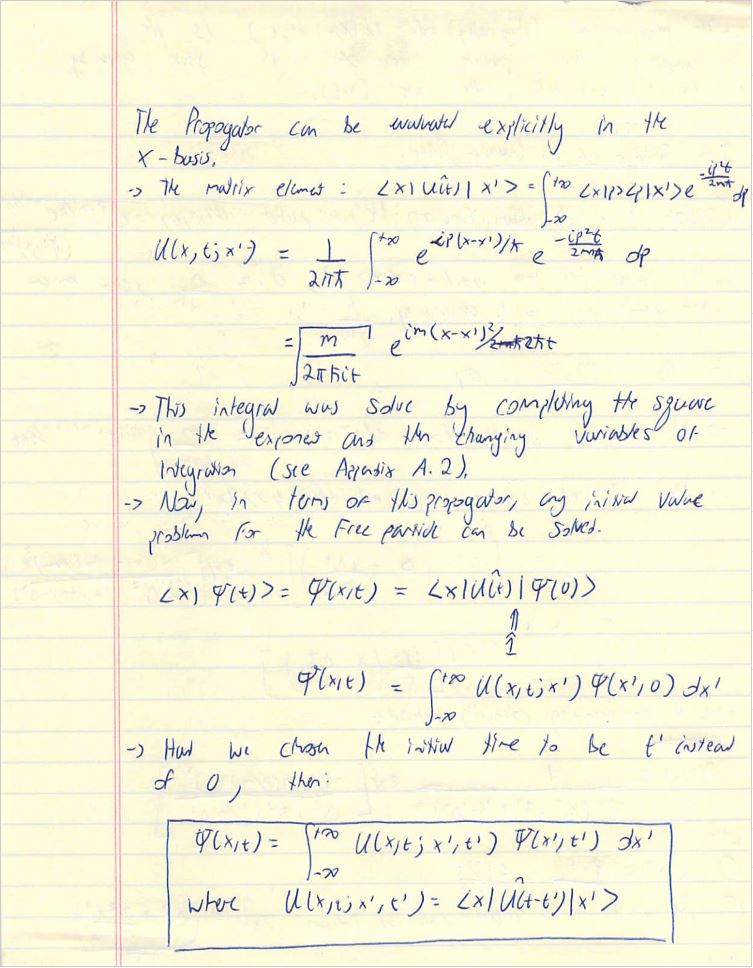 The Propogator can be evaluated explicitly in the
X-basis.
-> The matrix element: <x|Û(t)|x'> = ∫_{-∞}^{+∞} <x|p><p|x'> e^{-ip²t/2mħ} dp
U(x,t;x') = 1/2πħ ∫_{-∞}^{+∞} e^{ip(x-x')/ħ} e^{-ip²t/2mħ} dp
= √(m/2πħit) e^{im(x-x')²/2ħt}
-> This integral was solve by completing the square
in the exponent and then changing variables of
integration (see Appendix A.2).
-> Now, in terms of this propogator, any initial value
problem for the free particle can be solved.
<x|Ψ(t)> = Ψ(x,t) = <x|Û(t)|Ψ(0)>
⇑
1̂
Ψ(x,t) = ∫_{-∞}^{+∞} U(x,t;x') Ψ(x',0) dx'
-> Had we chosen the initial time to be t' instead
of 0, then:
Ψ(x,t) = ∫_{-∞}^{+∞} U(x,t;x',t') Ψ(x',t') dx'
where U(x,t;x',t') = <x|Û(t-t')|x'>